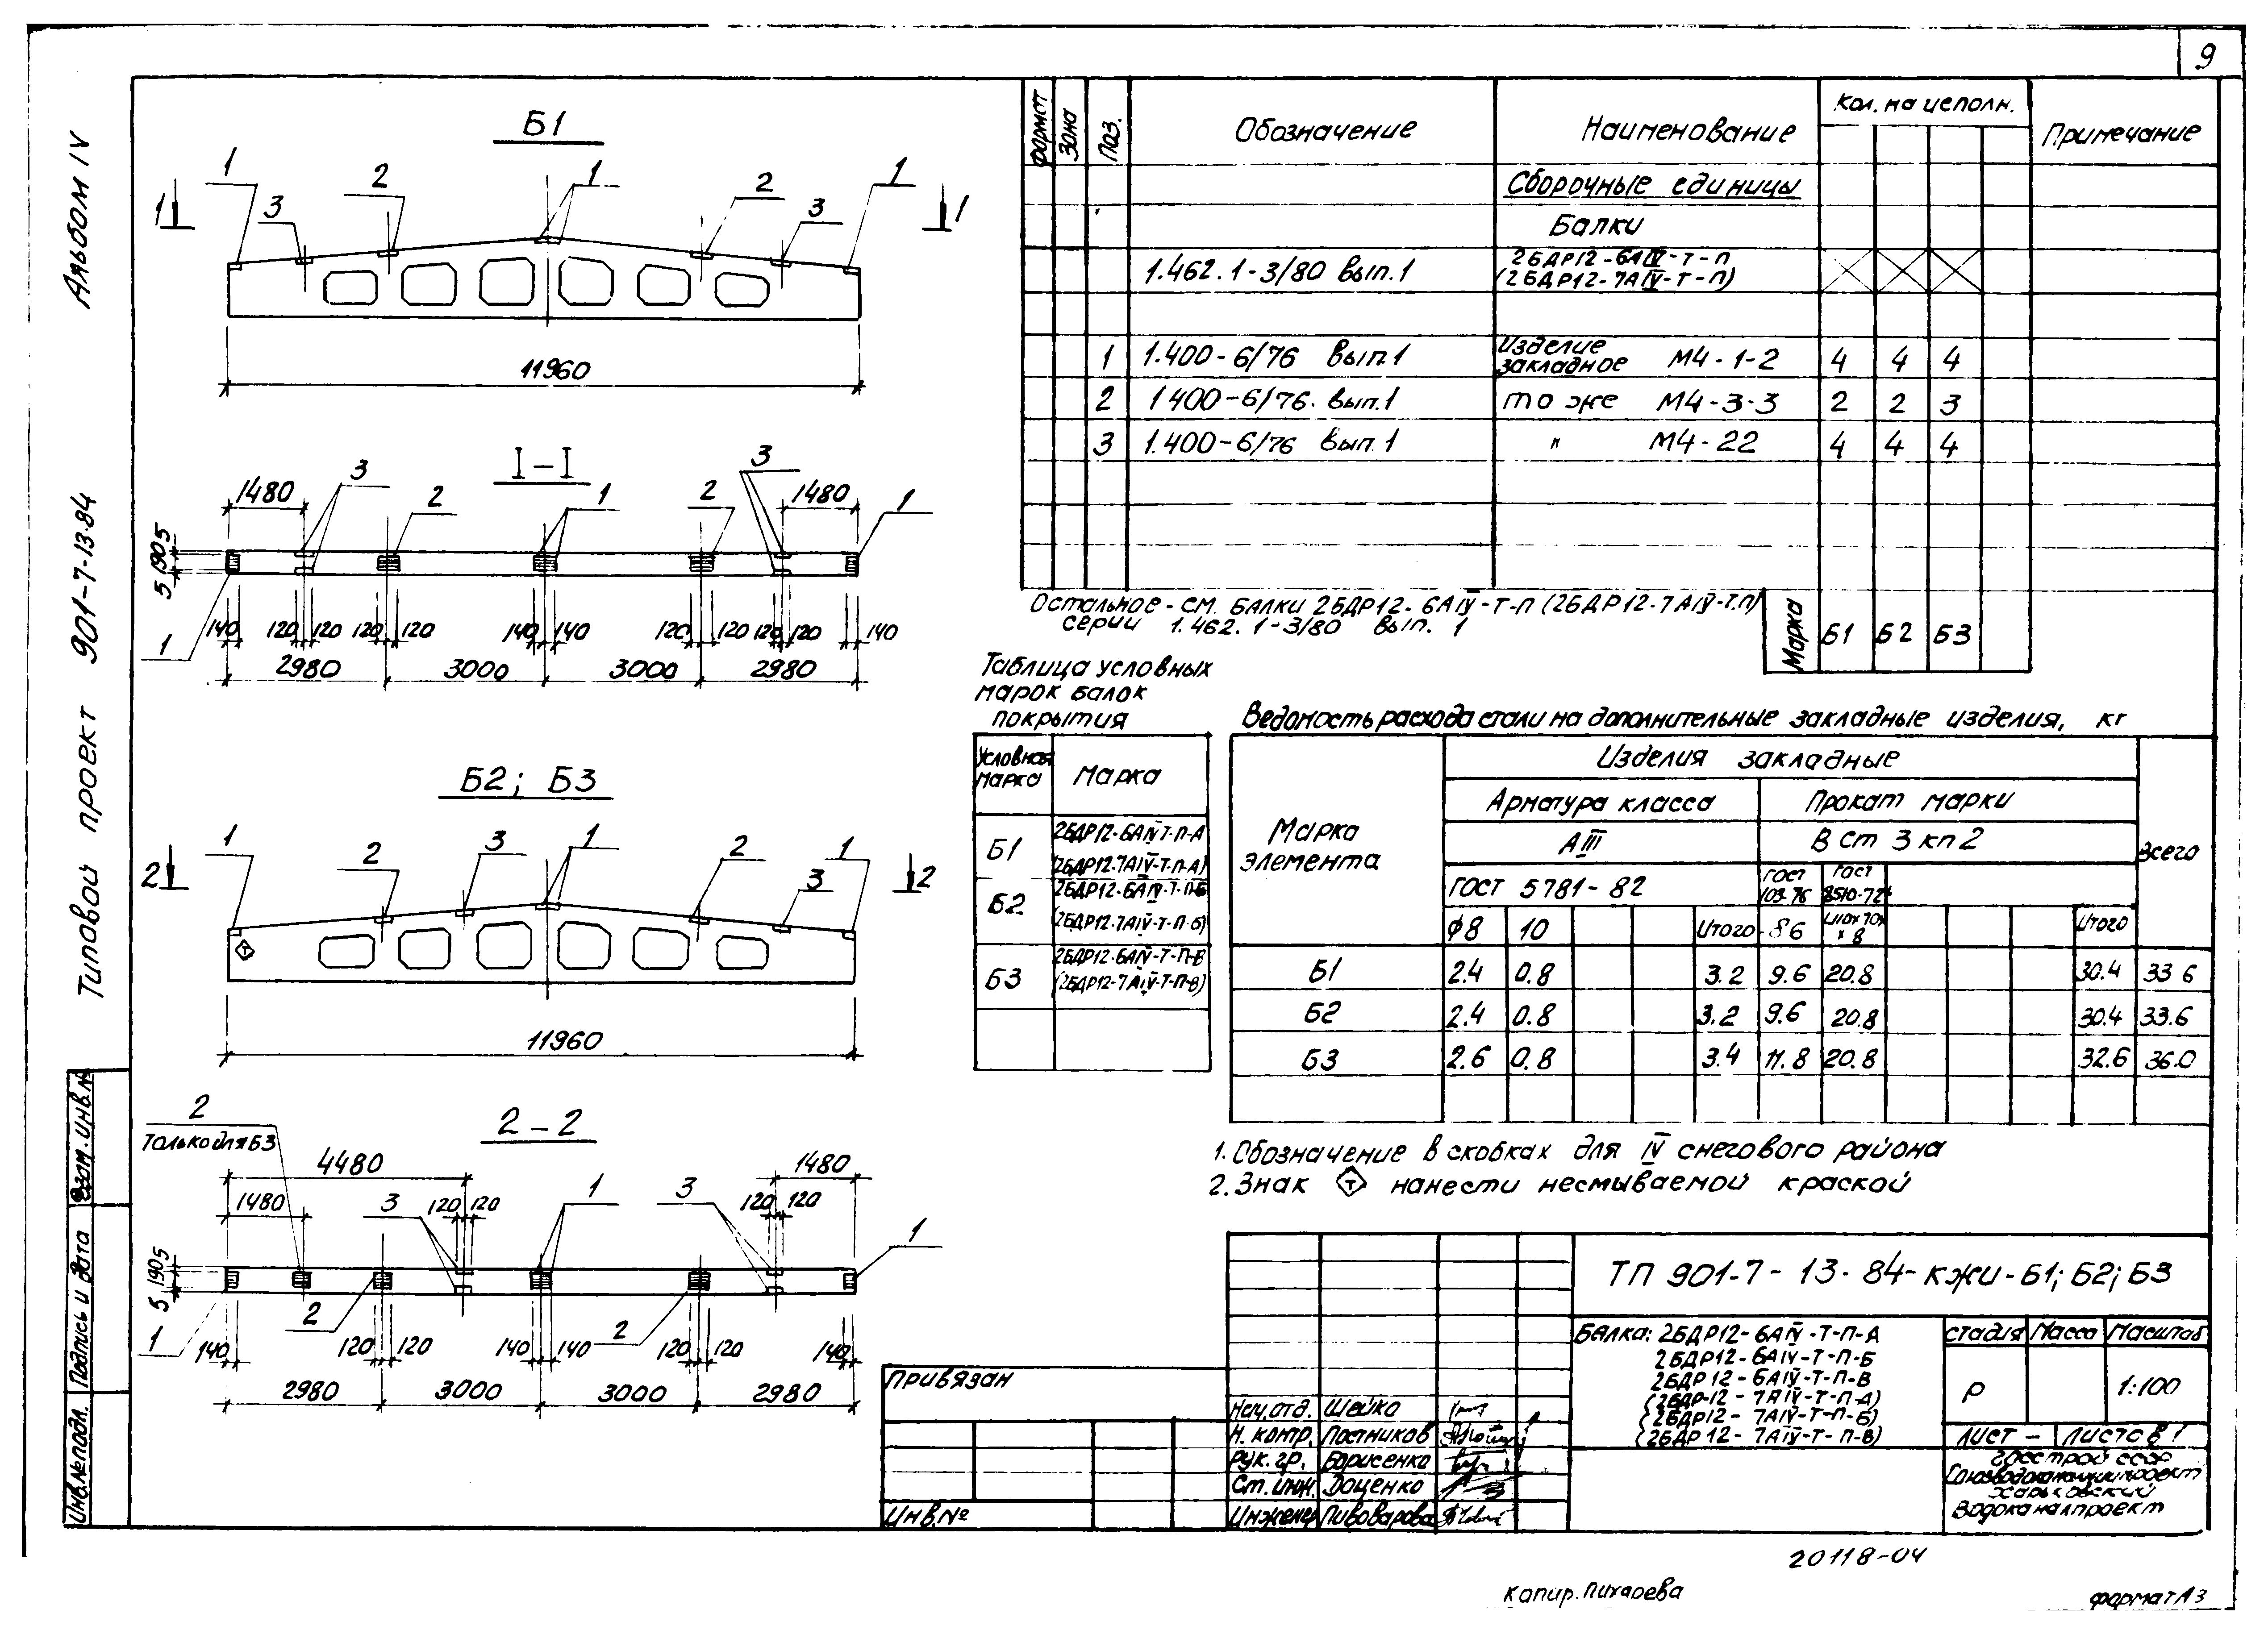 9
Альбом IV
Типовой проект 901-7-13.84
Взам. инв.№
Подпись и дата
Инв.№ подл.
Б1
1 3 2 1 2 3 1
1 1
11960
I-I
1480 3 2 1 2 3 1480 1
5 190 5
140 120 120 120 120 140 140 120 120 120 120 140
1
2980 3000 3000 2980
Б2; Б3
1 2 3 1 2 3 1
2 2
т
11960
2-2
2
только для Б3
4480 1480
1480 3 120 120 1 3 120 120 1
5 190 5
1 2 2
140 120 120 140 140 120 120 140
2980 3000 3000 2980
формат Зона Поз. Обозначение Наименование Кол. на исполн. Примечание
Сборочные единицы
Балки
1.462.1-3/80 вып.1 2БДР12-6АIV-т-п
(2БДР12-7АIV-т-п)
1 1.400-6/76 вып.1 Изделие закладное М4-1-2 4 4 4
2 1400-6/76. вып.1 то же М4-3-3 2 2 3
3 1.400-6/76 вып.1 " М4-22 4 4 4
Остальное - см. балки 2БДР12-6АIV-т-п (2БДР12-7АIV-т.п)
серии 1.462.1-3/80 вып. 1
Марка Б1 Б2 Б3
Таблица условных
марок балок
покрытия
Условная марка Марка
Б1 2БДР12-6АIV-т-п-А
(2БДР12-7АIV-т-п-А)
Б2 2БДР12-6АIV-т-п-Б
(2БДР12-7АIV-т-п-Б)
Б3 2БДР12-6АIV-т-п-В
(2БДР12-7АIV-т-п-В)
Ведомость расхода стали на дополнительные закладные изделия, кг
Марка элемента Изделия закладные Всего
Арматура класса Прокат марки
АIII В Ст 3 кп 2
ГОСТ 5781-82 ГОСТ 103-76 ГОСТ 8510-72*
ф8 10 Итого -86 L110х70х8 Итого
Б1 2.4 0.8 3.2 9.6 20.8 30.4 33.6
Б2 2.4 0.8 3.2 9.6 20.8 30.4 33.6
Б3 2.6 0.8 3.4 11.8 20.8 32.6 36.0
1. Обозначение в скобках для IV снегового района
2. Знак т нанести несмываемой краской
ТП 901-7-13.84-КЖИ-Б1; Б2; Б3
Балка: 2БДР12-6АIV-т-п-А
2БДР12-6АIV-т-п-Б
2БДР12-6АIV-т-п-В
(2БДР-12-7АIV-т-п-А)
(2БДР12-7АIV-т-п-Б)
(2БДР12-7АIV-т-п-В)
стадия Масса Масштаб
Р 1:100
Лист - Листов 1
Госстрой СССР
Союзводоканалниипроект
Харьковский
Водоканалпроект
Привязан
Инв.№
Нач.отд. Шейко
Н. контр. Постников
Рук. гр. Борисенко
Ст. инж. Доценко
Инженер Пивоварова
20118-04
копир. Пихаева
формат А3